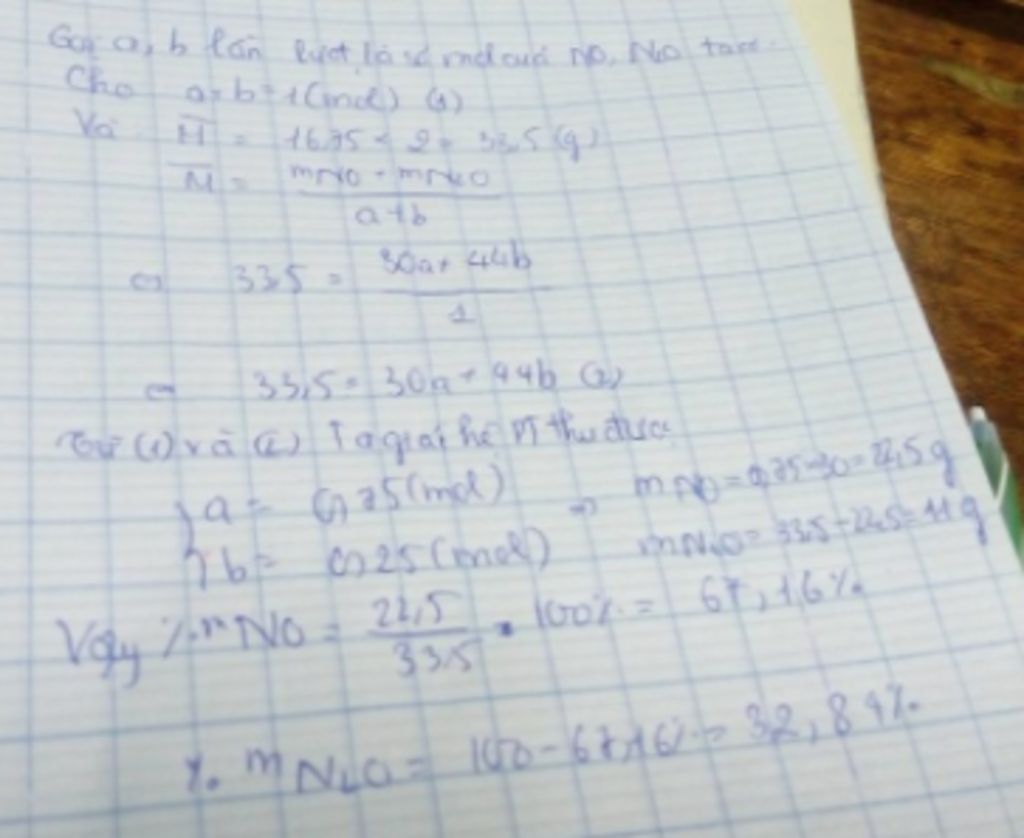 Gọi a, b lần lượt là số mol của NO, N2O ta có
Cho a+b=1(mol) (1)
Và M = 16,75 × 2 = 33,5 (g)
M = mNO + mN2O / a+b
⇔ 33,5 = 30a + 44b / 1
⇔ 33,5 = 30a + 44b (2)
Từ (1) và (2) Ta giải hệ PT thu được
a = 0,75 (mol) ⇒ mNO = 0,75·30 = 22,5g
b = 0,25 (mol) mN2O = 33,5 - 22,5 = 11g
Vậy %mNO = 22,5 / 33,5 · 100% = 67,16%
%mN2O = 100 - 67,16% = 32,84%